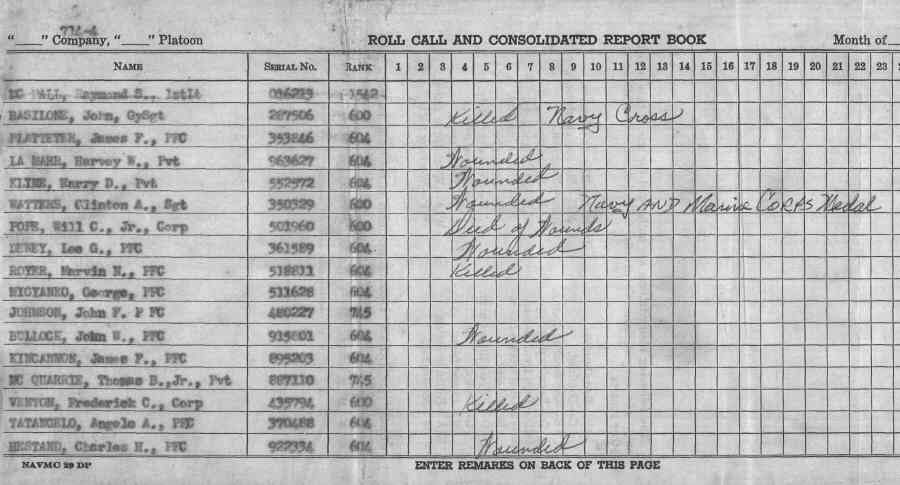 "____" Company, "____" Platoon ROLL CALL AND CONSOLIDATED REPORT BOOK Month of
NAME SERIAL NO. RANK 1 2 3 4 5 6 7 8 9 10 11 12 13 14 15 16 17 18 19 20 21 22 23
Raymond S., 1stLt 1542
BASILONE, John, GySgt 287506 600 Killed Navy Cross
PLATTETER, James F., PFC 353846 604
LA MARR, Harvey W., Pvt 963627 604 Wounded
KLINE, Harry D., Pvt 552572 604 Wounded
WATTERS, Clinton A., Sgt 350329 600 Wounded Navy AND Marine CORPS Medal
POPE, Will C., Jr., Corp 501960 600 Died of Wounds
DEWEY, Leo G., PFC 361589 604 Wounded
ROYER, Marvin N., PFC 518811 604 Killed
George, PFC 511628 604
JOHNSON, John F. P FC 480227 745
BULLOCK, John W., PFC 915801 604 Wounded
KINCANNON, James F., PFC 895203 604
MC QUARRIE, Thomas B.,Jr., Pvt 887110 745
VENTON, Frederick C., Corp 435794 600 Killed
TATANGELO, Angelo A., PFC 370488 604
HESTAND, Charles H., PFC 922334 604 Wounded
NAVMC 29 DP ENTER REMARKS ON BACK OF THIS PAGE